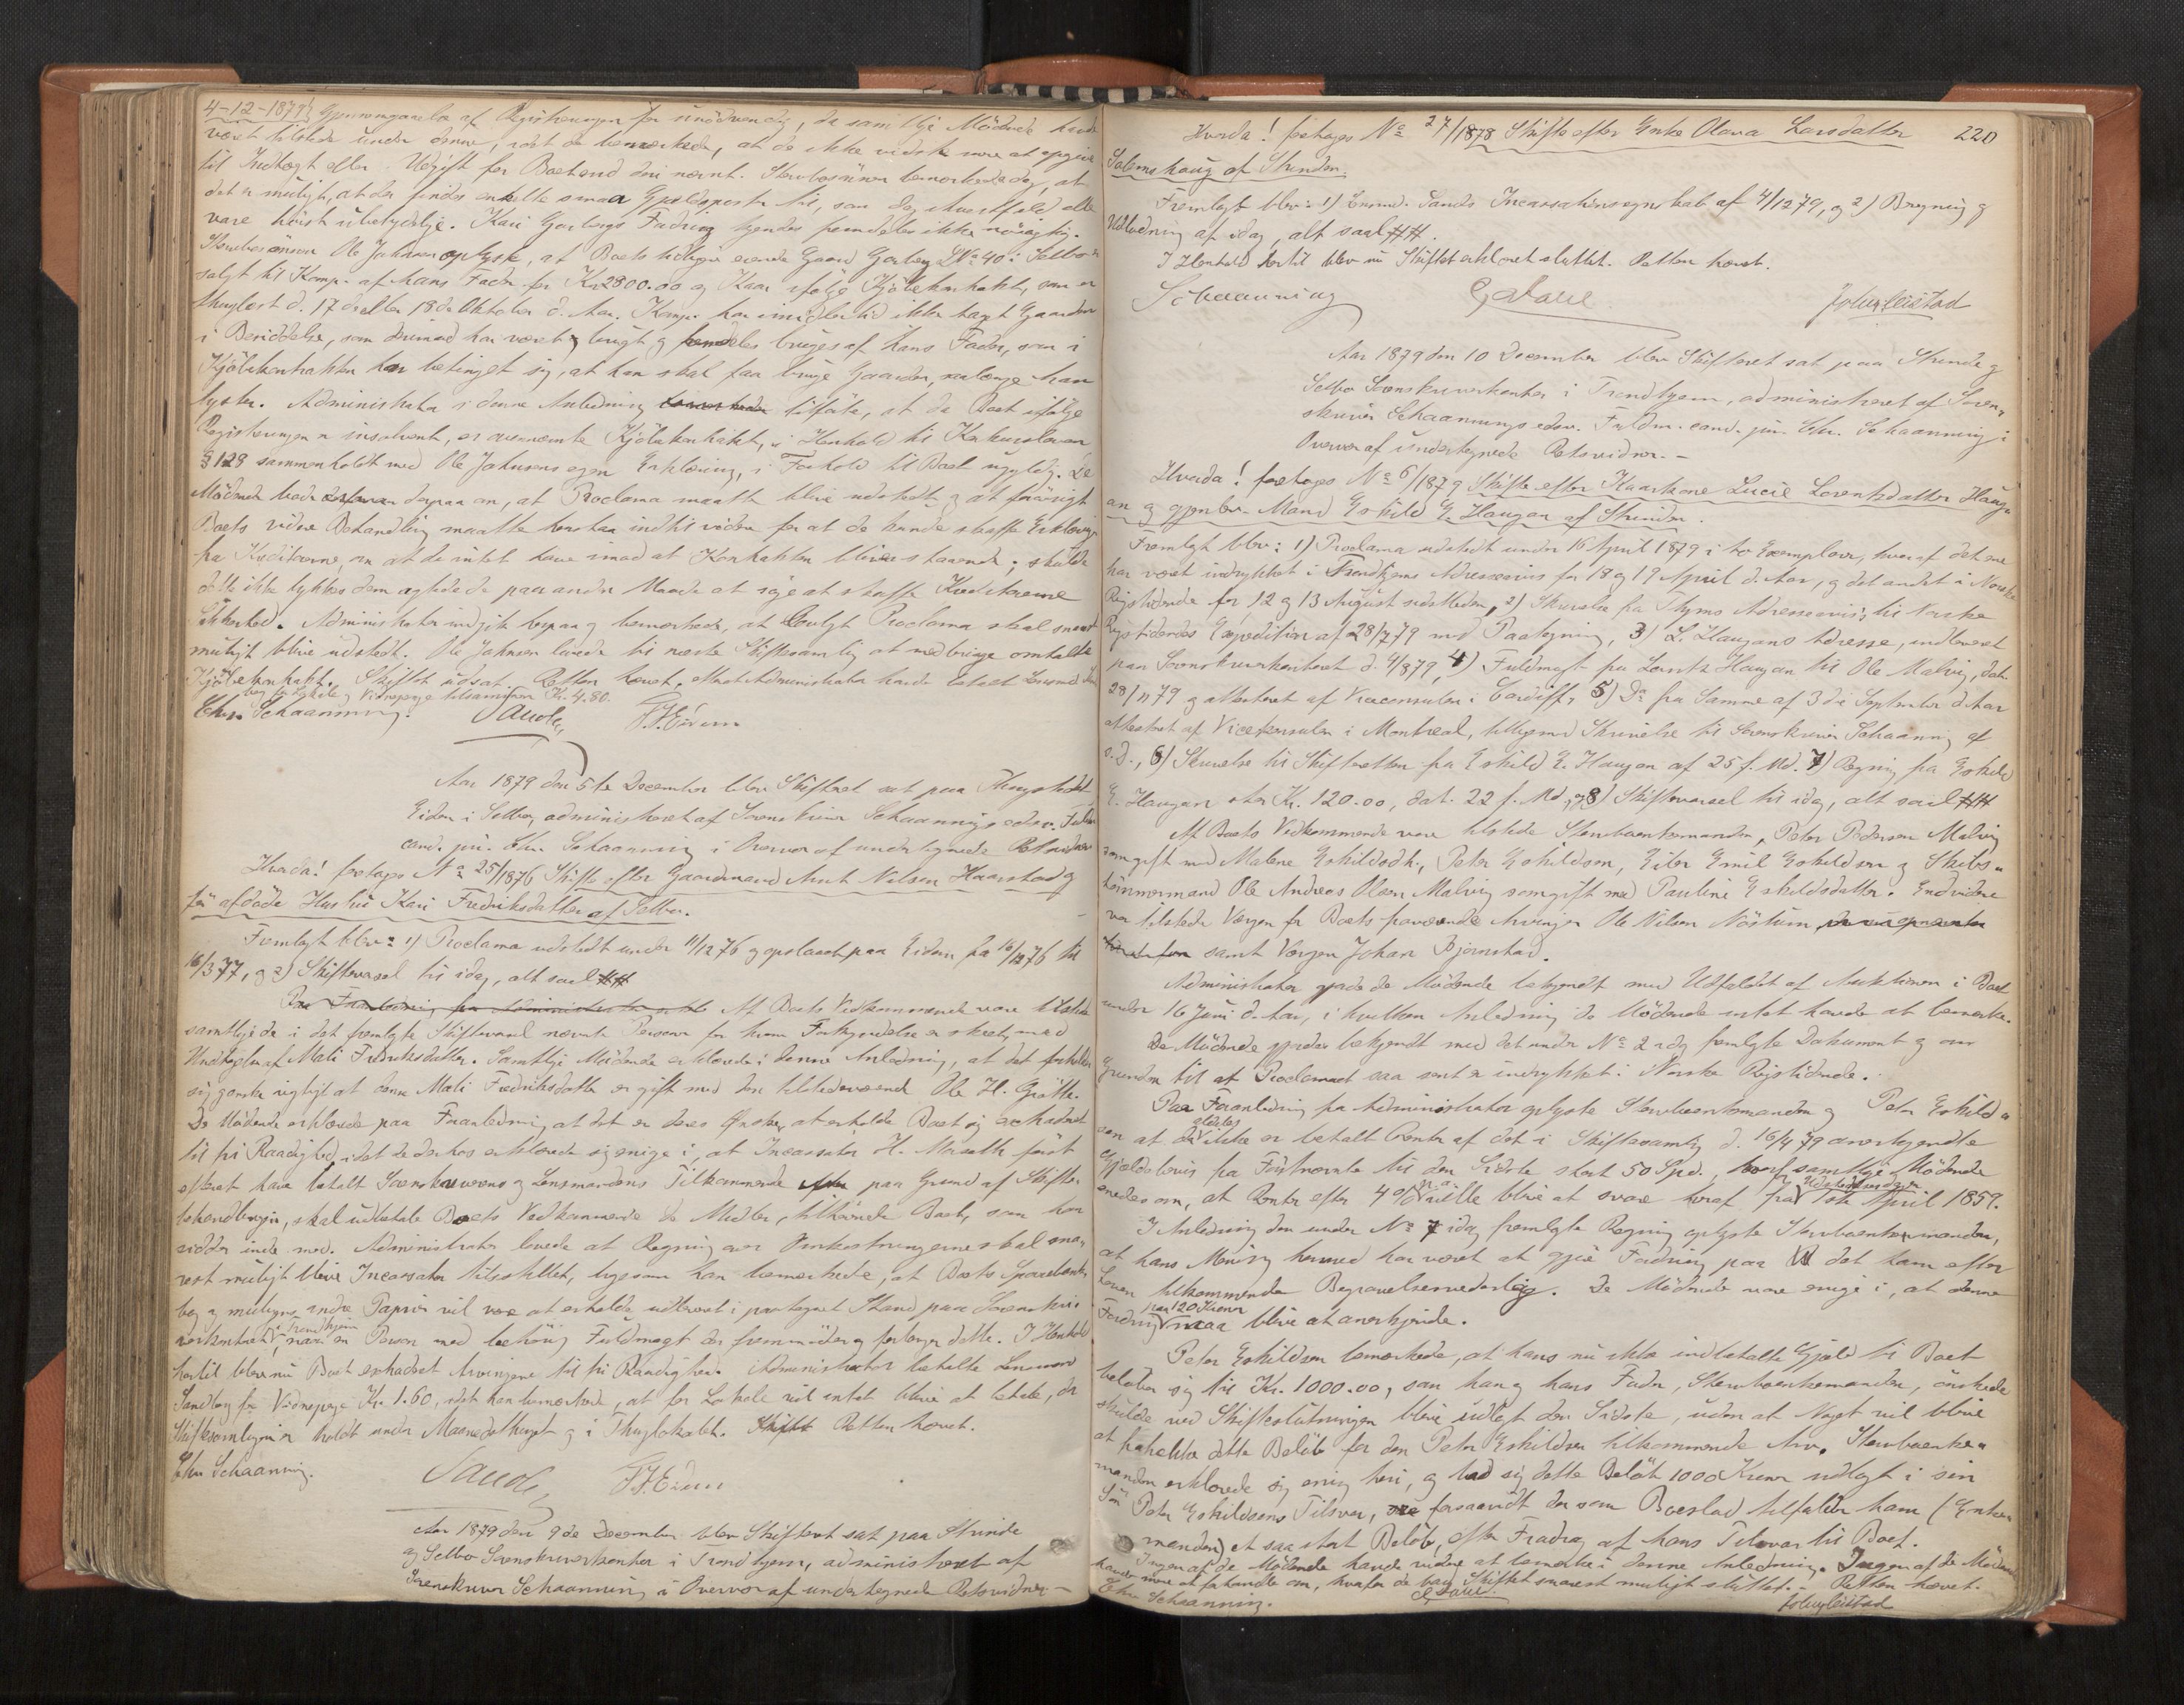 4-12-1879. Gjennemgaaelse af Registreringen for unödvendig, da samtlige Mödende havde
været tilstede under denne, idet de bemærkede, at de ikke vidste mere at opgive
til Indtægt eller Udgift for Boet end deri nævnt. Stervbosönnen bemærkede dog, at
det er muligt, at der findes enkelte smaa Gjældsposter til, som dog i hvertfald alle
vare höist ubetydelige. Kari Garbergs Fodring kjendes fremdeles ikke nöiagtig.
Stervbosönnen Ole Johnsen oplyste, at Boets tidligere eiende Gaard Garberg LNo 40 i Selbo er
solgt til Komp. af hans Fader for Kr 2800.00 og Kaar ifölge Kjöbekontrakt, som er
thinglæst d. 17de eller 18de Oktober d. Aar. Komp. har imidlertid ikke taget Gaarden
i Besiddelse, som derimod har været brugt og fremdeles bruges af hans Fader, som i
Kjöbekontrakten har betinget sig, at han skal faa bruge Gaarden, saalænge han
lyster. Administrator i denne Anledning tilföiede, at da Boet ifölge
Registreringen er insolvent, er ovennævnte Kjöbekontrakt, i Henhold til Konkursloven
§ 128 sammenholdt med Ole Johnsens egen Erklæring, i Forhold til Boet ugyldig. De
Mödende bade derpaa om, at Proclama maatte blive udstedt og at forövrigt
Boets videre Behandling maatte bero indtil videre for at de kunde skaffe Erklæring
fra Kreditorerne om at de intet have imod at Kontrakten bliver staaende; skulde
dette ikke lykkes dem agtede de paa anden Maade at söge at skaffe Kreditorerne
Sikkerhed. Administrator indgik herpaa og bemærkede, at lovligt Proclama skal snarest
muligt blive udstedt. Ole Johnsen lovede til næste Skiftesamling at medbringe omtalte
Kjöbekontrakt. Skiftet udsat. Retten hævet, efter at Administrator havde betalt Lensmd.
for Lokale og Vidnepenge tilsammen Kr. 4.80.
Chr. Schaanning. Sande F. Eidem
Aar 1879 den 5te December blev Skifteret sat paa Thingstedet
Eidem i Selbo, administreret af Sorenskriver Schaannings edsv. Fuldm.
cand. jur. Chr. Schaanning i Overvær af undertegnede Retsvidner
Hvorda! foretoges No 25/1876 Skifte efter Gaardmand Arnt Nilsen Haarstad og
för afdöde Hustru Kari Fredriksdatter af Selbo.
Fremlagt blev: 1) Proclama udstedt under 11/12 76 og opslaaet paa Eidem fra 16/12 76 til
16/3 77, og 2) Skiftevarsel til idag, alt saal. ##
Af Boets Vedkommende vare tilstede
samtlige de i det fremlagte Skiftevarsel nævnte Personer for hvem Forkyndelse er skeet, med
Undtagelse af Mali Fredriksdatter. Samtlige Mödende erklærede i denne Anledning, at det forholder
sig ganske rigtigt at denne Mali Fredriksdatter er gift med den tilstedeværende Ole H. Grötte.
De Mödende erklærede paa Foranledning at det er deres Önske, at erholde Boet sig extraderet
til fri Raadighed, idet de derhos erklærede sig enige i, at Incassator H. Moseth först
efterat have betalt Sorenskriverens og Lensmandens Tilkommende paa Grund af Skifte-
behandlingen, skal udbetale Boets Vedkommende de Midler, tilhörende Boet, som han
sidder inde med. Administrator lovede at Regning over Omkostningerne skal sna-
rest muligt blive Incassator tilstillet, ligesom han bemærkede, at Boets Sparebank-
bog og muligens andre Papirer vil være at erholde udleveret i paategnet Stand paa Sorenskri-
verkontoret i Trondhjem, naar en Person med behörig Fuldmagt der fremmöder og forlanger dette. I Henhold
hertil blev nu Boet extraderet Arvingerne til fri Raadighed. Administrator betalte Lensmd
Sandborg for Vidnepenge Kr. 1.60, idet han bemærkede, at for Lokale vil intet blive at betale, da
Skiftesamlingen er holdt under Maanedsthinget og i Thinglokalet. Retten hævet.
Chr Schaanning. Sande F. Eidem
Aar 1879 den 9de December blev Skifteret sat paa Strinde
og Selbo Sorenskriverkontor i Trondhjem, administreret af
Sorenskriver Schaanning i Overvær af undertegnede Retsvidner –
220
Hvorda! foretoges No 27/1878 Skifte efter Enke Olava Larsdatter
Solemshaug af Strinden.
Fremlagt blev: 1) Lensmd. Sands Incassationsregnskab af 4/12 79, og 2) Beregning og
Udlodning af idag, alt saal. ##.
I Henhold hertil blev nu Skiftet erklæret sluttet. Retten hævet.
Schaanning Johs Leistad
Aar 1879 den 10 December blev Skifteret sat paa Strinde og
Selbo Sorenskriverkontor i Trondhjem, administreret af Soren-
skriver Schaannings edsv. Fuldm. cand. jur. Chr. Schaanning i
Overvær af undertegnede Retsvidner. –
Hvorda! foretoges No 6/1879 Skifte efter Kaarkone Lucie Lorentsdatter Haug-
an og gjenlev. Mand Eskild E. Haugan af Strinden.
Fremlagt blev: 1) Proclama udstedt under 16 April 1879 i to Exemplarer, hvoraf det ene
har været indrykket i Trondhjems Adresseavis for 18 og 19 April d. Aar, og det andet i Norske
Rigstidende for 12 og 13 August sidstleden, 2) Skrivelse fra Thjems Adresseavis, til Norske
Rigstidendes Expedition af 28/7 79 med Paategning, 3) L. Haugans Adresse, indleveret
paa Sorenskriverkontoret d. 4/8 79, 4) Fuldmagt fra Lorents Haugan til Ole Malvig, dat.
28/11 79 og attesteret af Viceconsulen i Cardiff, 5) Do fra Samme af 3die September d. Aar
attesteret af Vicekonsulen i Montreal, tilligemed Skrivelse til Sorenskriver Schaanning af
s. D., 6) Skrivelse til Skifteretten fra Eskild E. Haugan af 25 f. Md. 7) Regning fra Eskild
E. Haugan stor Kr. 120.00, dat. 22 f. Md, og 8) Skiftevarsel til idag, alt saal. ##
Af Boets Vedkommende vare tilstede Stervboenkemanden, Peter Pedersen Malvig
som gift med Malene Eskildsdtr., Peter Eskildsen, Eiler Emil Eskildsen og Skibs-
tömmermand Ole Andreas Olsen Malvig som gift med Pauline Eskildsdatter. Endvidere
var tilstede Værgen for Boets fraværende Arvinger Ole Nilsen Nöstum
samt Værgen Johan Bjørnstad.
Administrator gjorde de Mödende bekjendt med Udfaldet af Auktionen i Boet
under 16 Juni d. Aar, i hvilken Anledning de Mödende intet havde at bemærke.
De Mödende gjordes bekjendt med det under No 2 idag fremlagte Dokument og om
Grunden til at Proclamaet saa sent er indrykket i Norske Rigstidende.
Paa Foranledning fra Administrator oplyste Stervboenkemanden og Peter Eskild-
sen at der aldeles ikke er betalt Renter af det i Skiftesamling d. 16/4 79 anerkjendte
Gjældsbevis fra Förstnævnte til den Sidste stort 50 Spd., hvorfor samtlige Mödende
enedes om, at Renter efter 4 % p. a. ville blive at svare heraf fra Udstedelsesdagen 1ste April 1859.
I Anledning den under No 7 idag fremlagte Regning oplyste Stervboenkemanden,
at hans Mening hermed har været at gjöre Fodring paa det ham efter
Loven tilkommende Begravelsesvederlag. De Mödende vare enige i, at denne
Fodring stor 120 Kroner maa blive at anerkjende.
Peter Eskildsen bemærkede, at hans nu ikke indbetalte Gjæld til Boet
beløber sig til Kr. 1000.00, som han og hans Fader, Stervboenkemanden, önskede
skulde ved Skifteslutningen blive udlagt den Sidste, uden at Noget vil blive
at fratrække dette Belöb for den Peter Eskildsen tilkommende Arv. Stervboenke-
manden erklærede sig enig heri, og bad sig dette Belöb 1000 Kroner udlagt i sin
Sön Peter Eskildsens Tilsvar, forsaavidt der som Boeslod tilfalder ham (Enke-
manden) et saa stort Belöb, efter Fradrag af hans Tilsvar til Boet.
Ingen af de Mödende havde videre at bemærke i denne Anledning. Ingen af de Mödende
havde mere at forhandle om, hvorfor de bad Skiftet snarest muligt sluttet. – Retten hævet.
Chr Schaanning. Johs Leistad